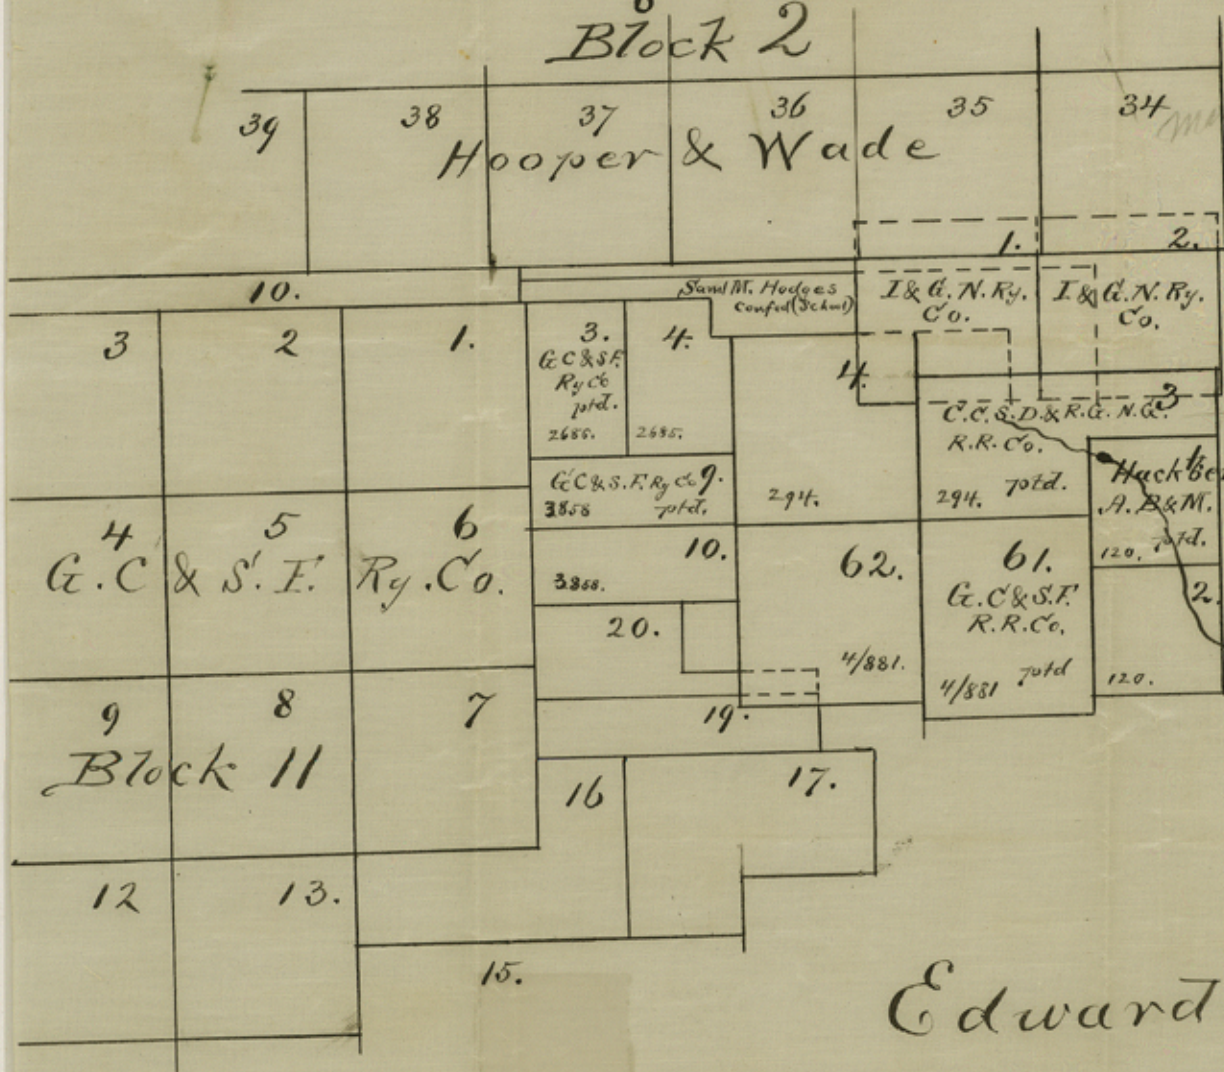 Block 2
39 38 37 36 35 34
Hooper & Wade
1. 2.
10.
Saml M. Hodges
Confed (School)
I & G. N. Ry.
Co.
I & G. N. Ry.
Co.
3 2 1.
3.
G C & S F.
Ry Co
ptd.
2685.
4.
2685.
4.
294.
3
C.C.S.D. & R.G. N.G.
R.R. Co.
294. ptd.
1
Hack
A. B & M.
ptd.
120.
G C & S. F. Ry Co 9.
3858 ptd.
4 5 6
G. C & S. F. Ry. Co.
10.
3858.
62.
4/881.
61.
G. C & S.F.
R.R. Co.
4/881 ptd
2.
120.
20.
19.
9 8 7
Block 11
16 17.
12 13.
15.
Edward